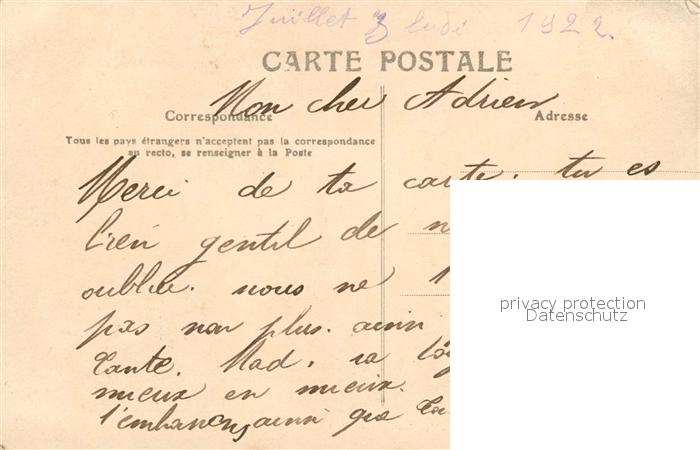 Juillet 3 1922.
CARTE POSTALE
Mon cher Adrien
Correspondance
Adresse
Tous les pays étrangers n'acceptent pas la correspondance
au recto, se renseigner à la Poste
Merci de ta carte. tu es
bien gentil de
oublier. nous ne
pas non plus. ainsi
tante. Mad. va
mieux en mieux.
t'embrassons, ainsi que ta
privacy protection
Datenschutz